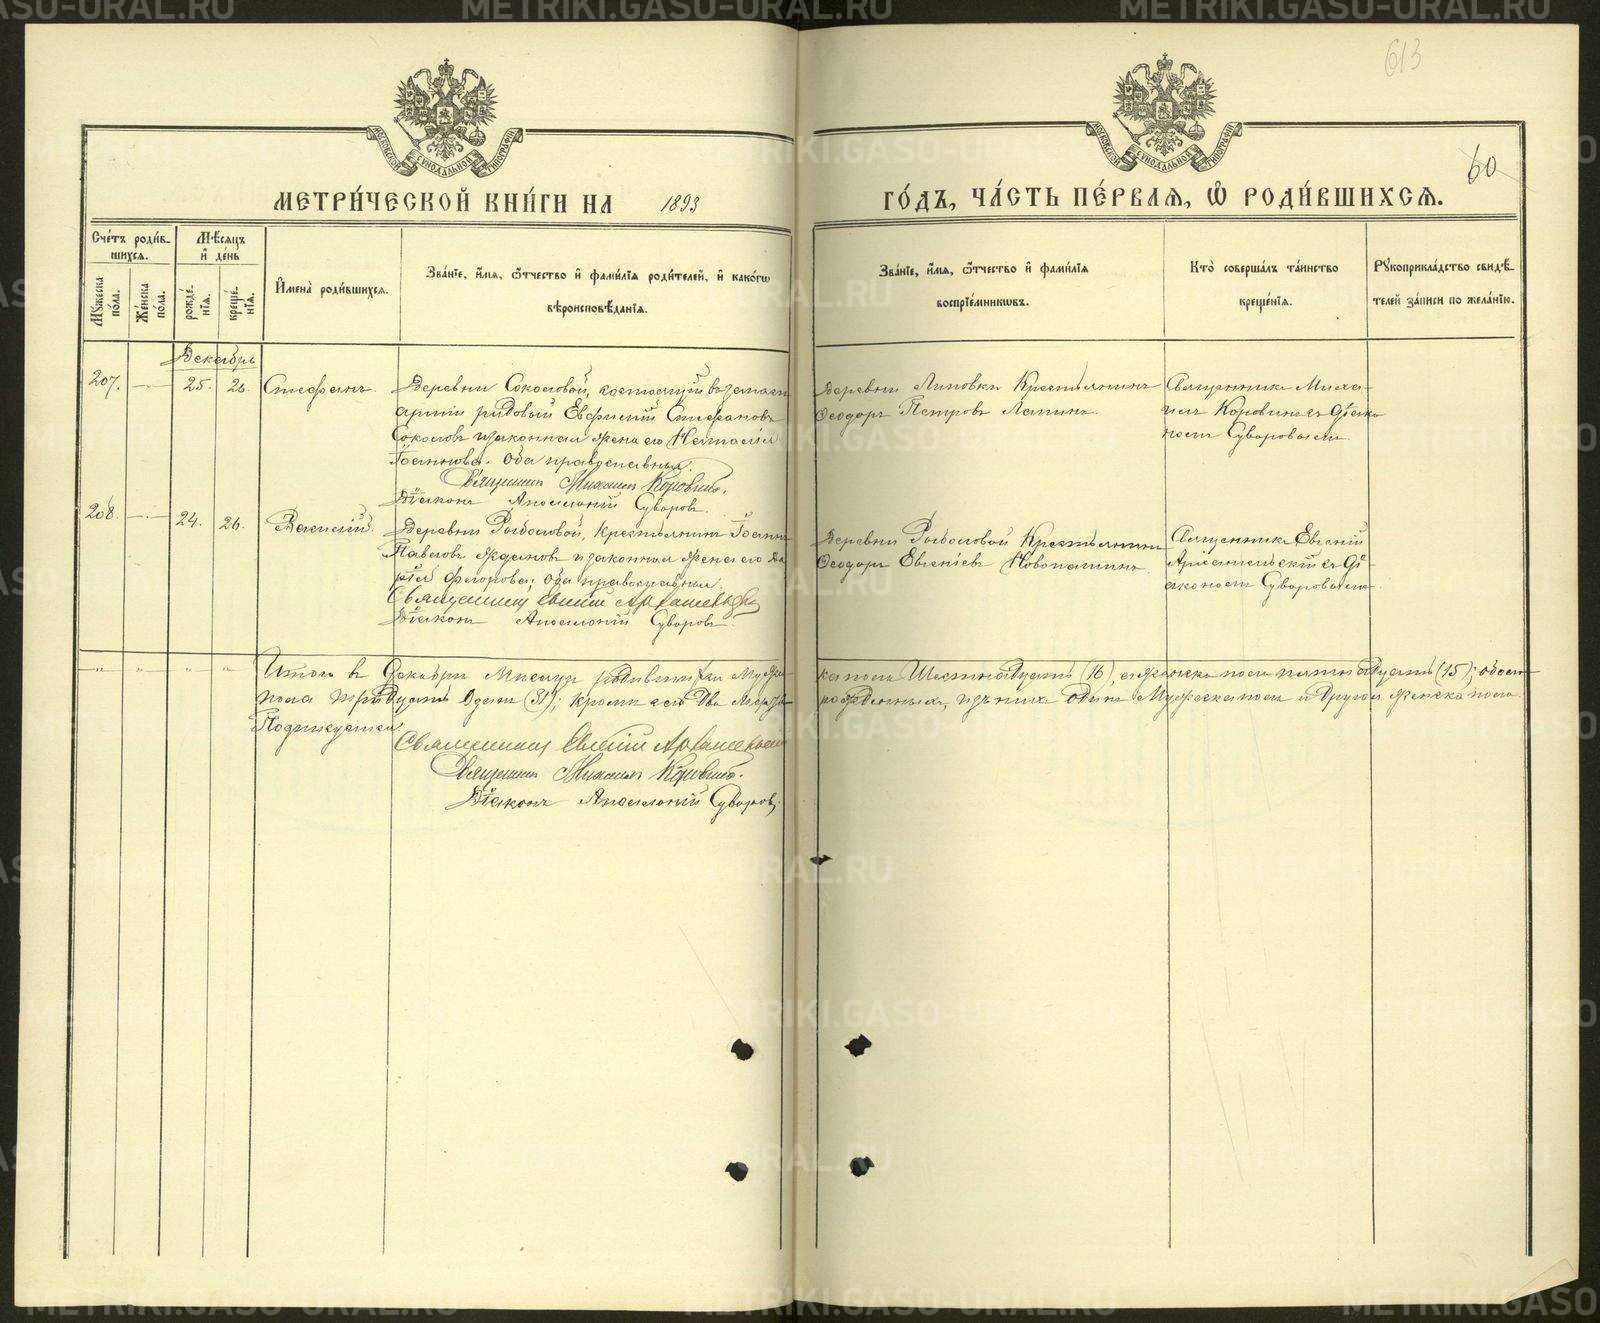 METRIKI.GASO-URAL.RU
613
60
МОСКОВСКОЙ СѴНОДАЛЬНОЙ ТИПОГРАФІИ
МОСКОВСКОЙ СѴНОДАЛЬНОЙ ТИПОГРАФІИ
МЕТРИ́ЧЕСКОЙ КНИ́ГИ НА 1893
ГО́ДЪ, ЧА́СТЬ ПЕ́РВАЯ, Ѽ РОДИ́ВШИХСЯ.
Сче́тъ роди́в-
шихся.
Мꙋ́жеска по́ла.
Же́нска по́ла.
Мѣ́сяцъ и҆ де́нь
рожде́нїѧ.
креще́нїѧ.
И҆мена̀ роди́вшихсѧ.
Зва́нїе, и҆́мѧ, ѻ҆́тчество и҆ фами́лїѧ роди́телей, и҆ како́гѡ
вѣроисповѣ́данїѧ.
Зва́нїе, и҆́мѧ, ѻ҆́тчество и҆ фами́лїѧ
воспрїе́мникѡвъ.
Кто̀ соверша́лъ та́инство
креще́нїѧ.
Рꙋкоприкла́дство свидѣ́-
телей за́писи по жела́нїю.
Декабрь
207. — 25. 26. Стефанъ.
Деревни Соколовой, состоящій въ запасѣ
арміи рядовой Евфимій Стефановъ
Соколовъ и законная жена его Наталія
Іоаннова. Оба православныя.
Священникъ Михаилъ Коровинъ.
Діаконъ Аполлоній Суворовъ.
Деревни Липовки Крестьянинъ
Ѳеодоръ Петровъ Лапинъ.
Священникъ Миха-
илъ Коровинъ съ Діако-
номъ Суворовымъ.
208. — 24. 26. Василій.
Деревни Рыболовой, Крестьянинъ Іоаннъ
Павловъ Ждановъ и законная жена его Да-
рія Флорова; оба православныя.
Священникъ Евгеній
Діаконъ Аполлоній Суворовъ.
Деревни Рыболовой Крестьянинъ
Ѳеодоръ Евгеніевъ Новопашинъ.
Священникъ Евгеній
съ Ді-
акономъ Суворовымъ.
Итого въ Декабрѣ Мѣсяцѣ родившихся Муже-
ска пола Шестнадцать (16), а женска пола пятнадцать (15); обоего
пола тридцать Одинъ (31); кромѣ сего два Мертво-
рожденныхъ, изъ нихъ одинъ Мужеска пола и другой женска пола.
Подписуемся:
Священникъ Евгеній
Священникъ Михаилъ Коровинъ.
Діаконъ Аполлоній Суворовъ.